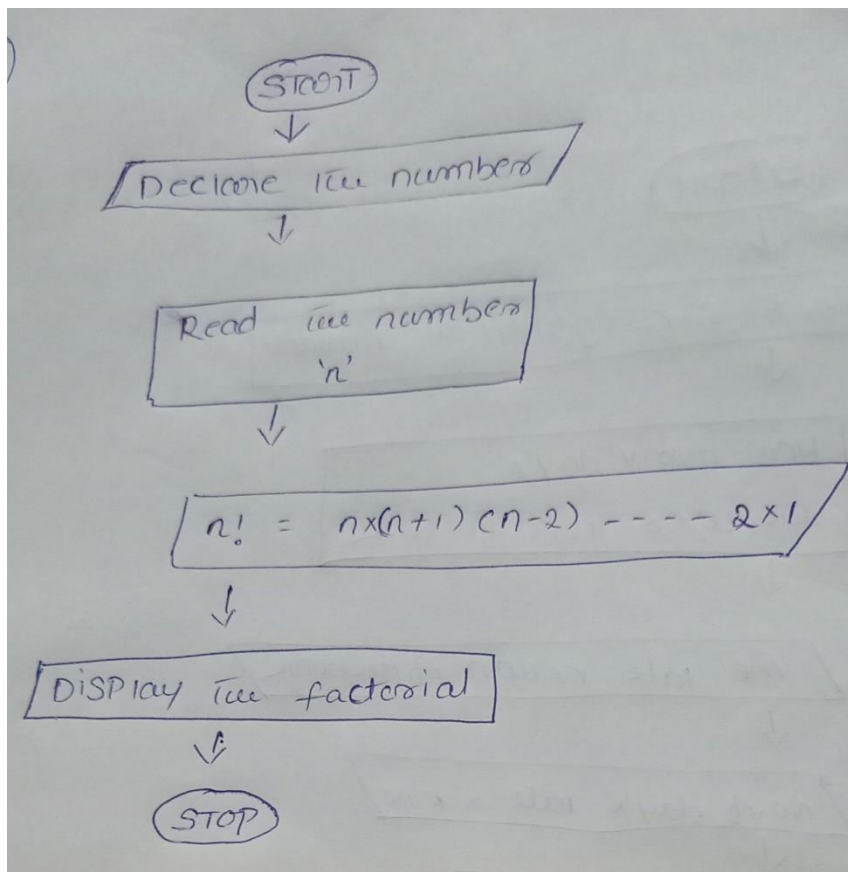 START
Declare the number
Read the number
'n'
n! = n×(n+1) (n-2) ---- 2×1
Display the factorial
STOP